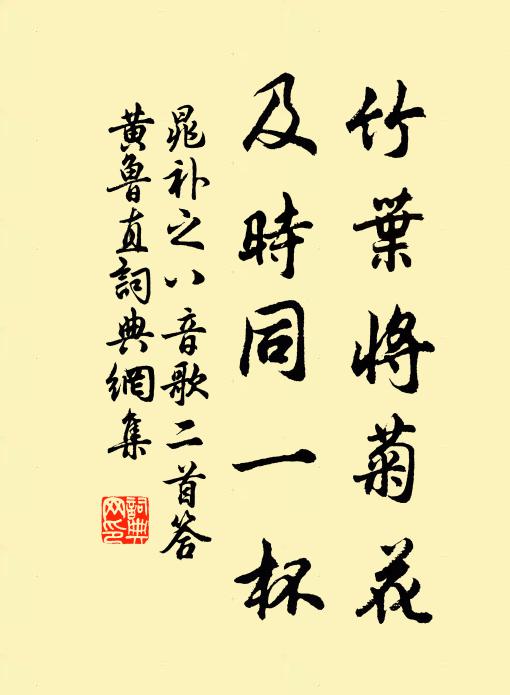 竹葉將菊花
及時同一杯
晁补之八音歌二首答
黄魯直詞典網集
詞典
网印